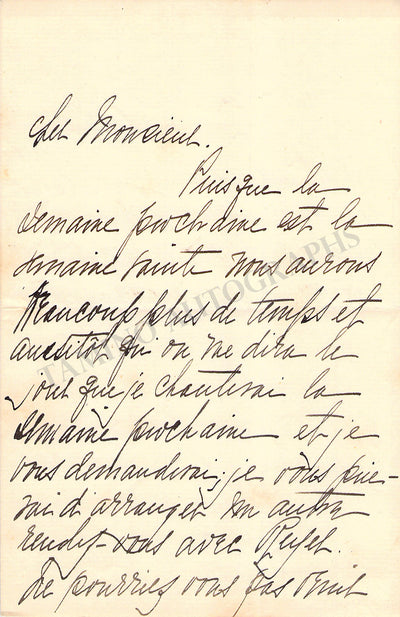 Cher Monsieur.
Puisque la
semaine prochaine est la
semaine sainte nous aurons
beaucoup plus de temps et
aussitôt qu'on me dira le
jour que je chanterai la
semaine prochaine et je
vous demanderai; je vous prie-
rai d'arranger un autre
rendez-vous avec
Ne pourriez vous pas venir
TAMINO AUTOGRAPHS